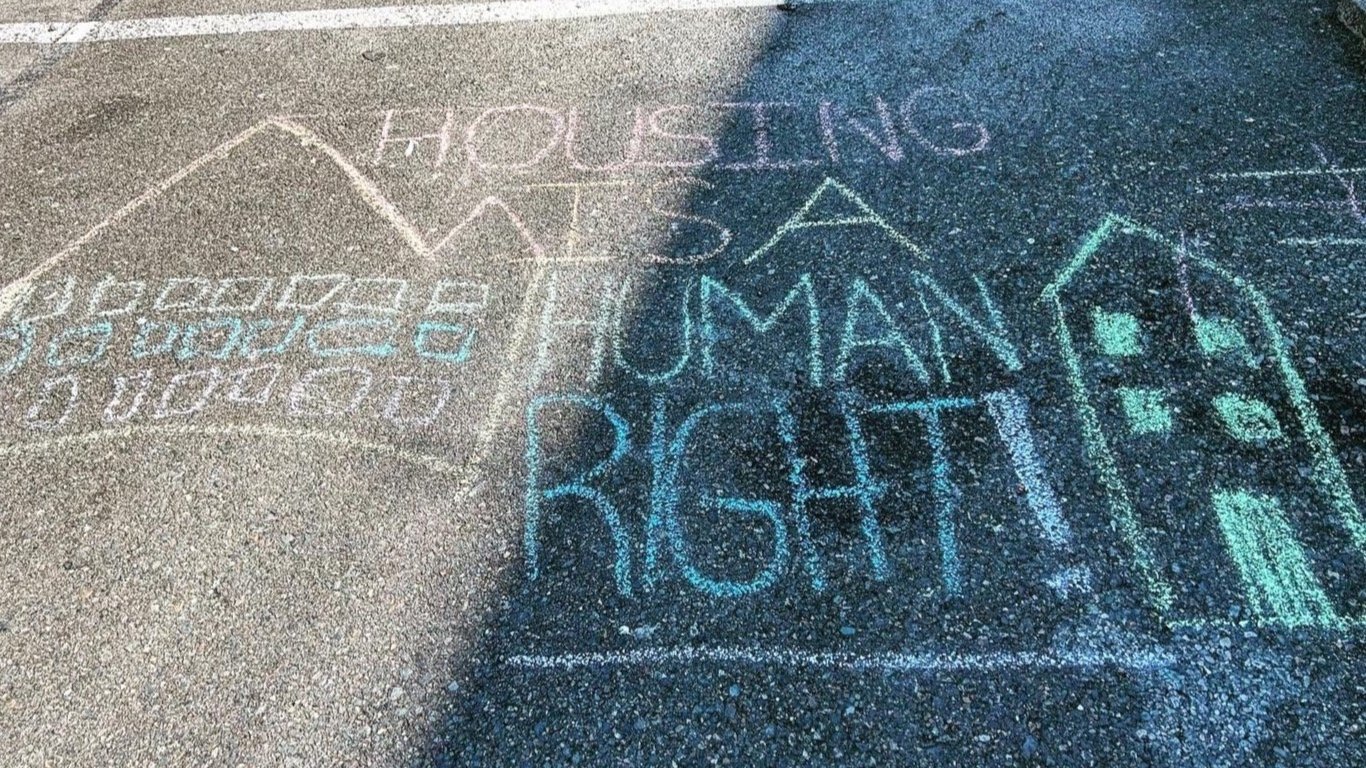 HOUSING
IS A
HUMAN
RIGHT!